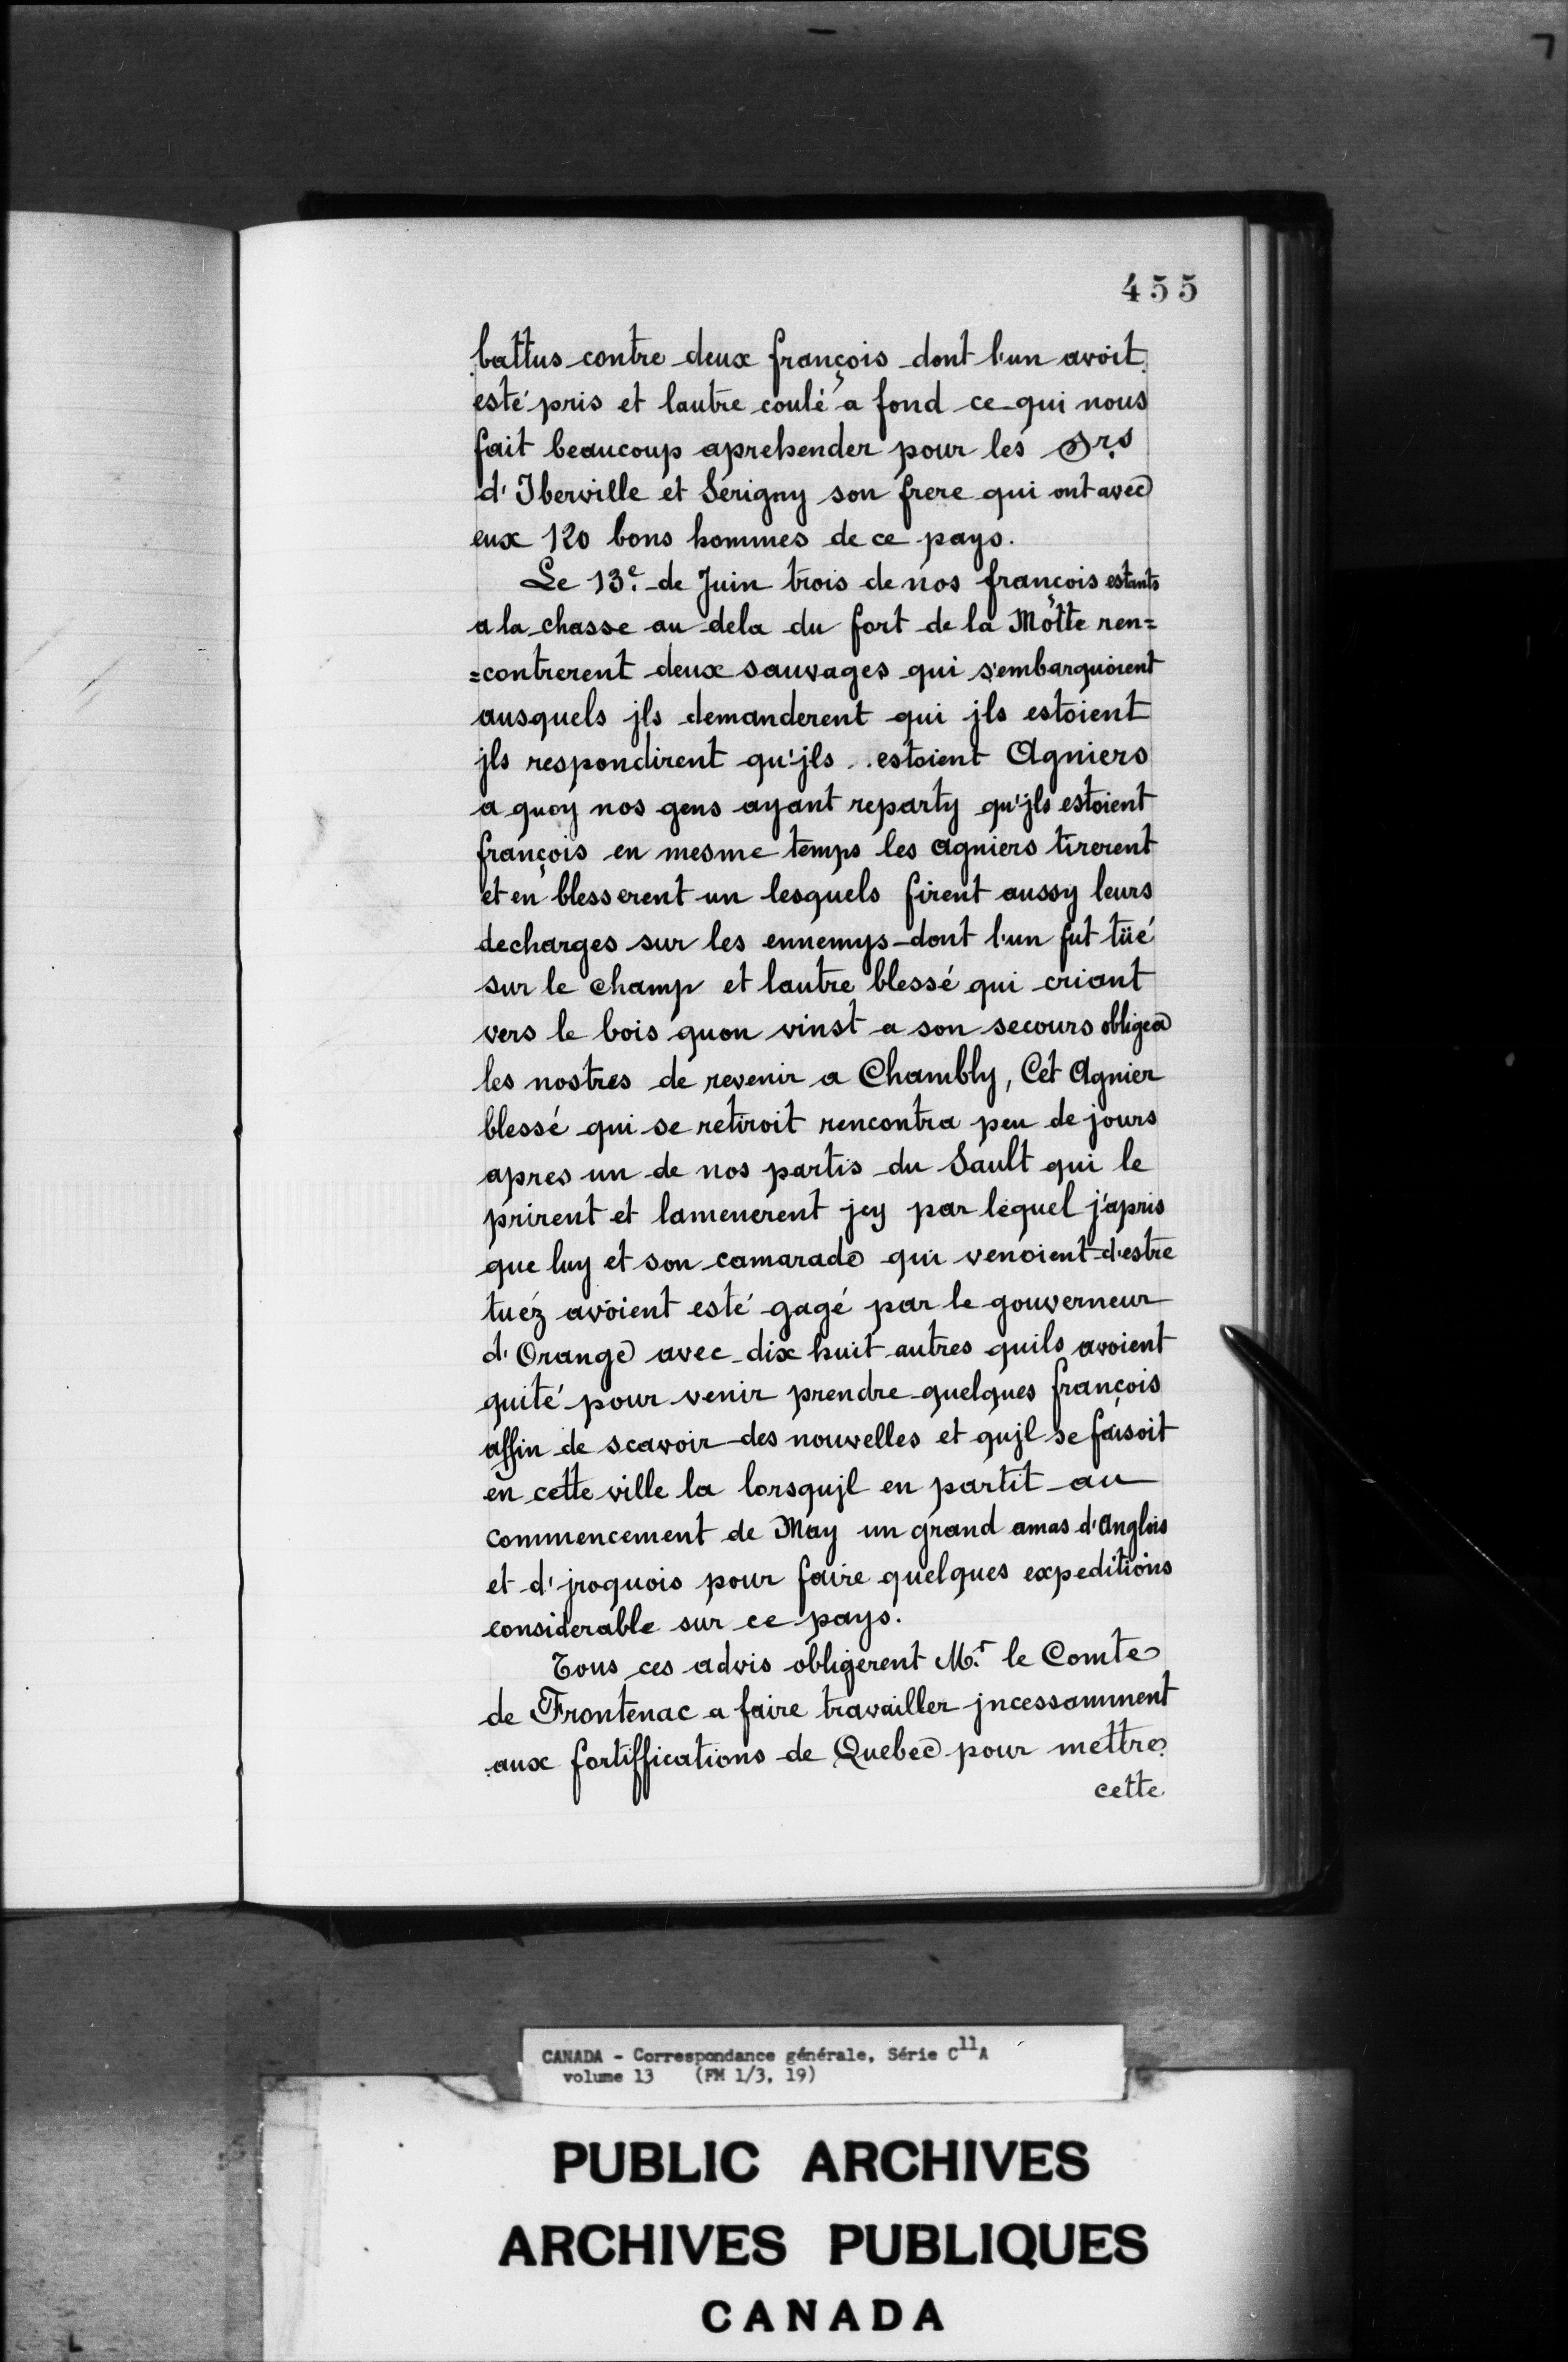 7
455
battus contre deux françois dont l'un avoit
esté pris et lautre coulé a fond ce qui nous
fait beaucoup aprehender pour les Srs
d'Iberville et Sérigny son frere qui ont avec
eux 120 bons hommes de ce pays.
Le 13e. de Juin trois de nos françois estants
a la chasse au dela du fort de la Motte ren=
=contrerent deux sauvages qui s'embarquoient
ausquels jls demanderent qui jls estoient
jls respondirent qu'jls estoient Agniers
a quoy nos gens ayant reparty qu'jls estoient
françois en mesme temps les agniers tirerent
et en blesserent un lesquels firent aussy leurs
decharges sur les ennemys dont l'un fut tüé
sur le champ et lautre blessé qui criant
vers le bois quon vinst a son secours obligea
les nostres de revenir a Chambly, Cet Agnier
blessé qui se retiroit rencontra peu de jours
apres un de nos partis du Sault qui le
prirent et lamenerent jcy par lequel j'apris
que luy et son camarade qui venoient d'estre
tuéz avoient esté gagé par le gouverneur
d'Orange avec dix huit autres quils avoient
quité pour venir prendre quelques françois
affin de scavoir des nouvelles et qujl se faisoit
en cette ville la lorsqujl en partit au
commencement de May un grand amas d'Anglois
et d'jroquois pour faire quelques expeditions
considerable sur ce pays.
Tous ces advis obligerent Mr. le Comte
de Frontenac a faire travailler jncessamment
aux fortiffications de Quebec pour mettre
cette
CANADA - Correspondance générale, Série C11A
volume 13 (FM 1/3, 19)
PUBLIC ARCHIVES
ARCHIVES PUBLIQUES
CANADA